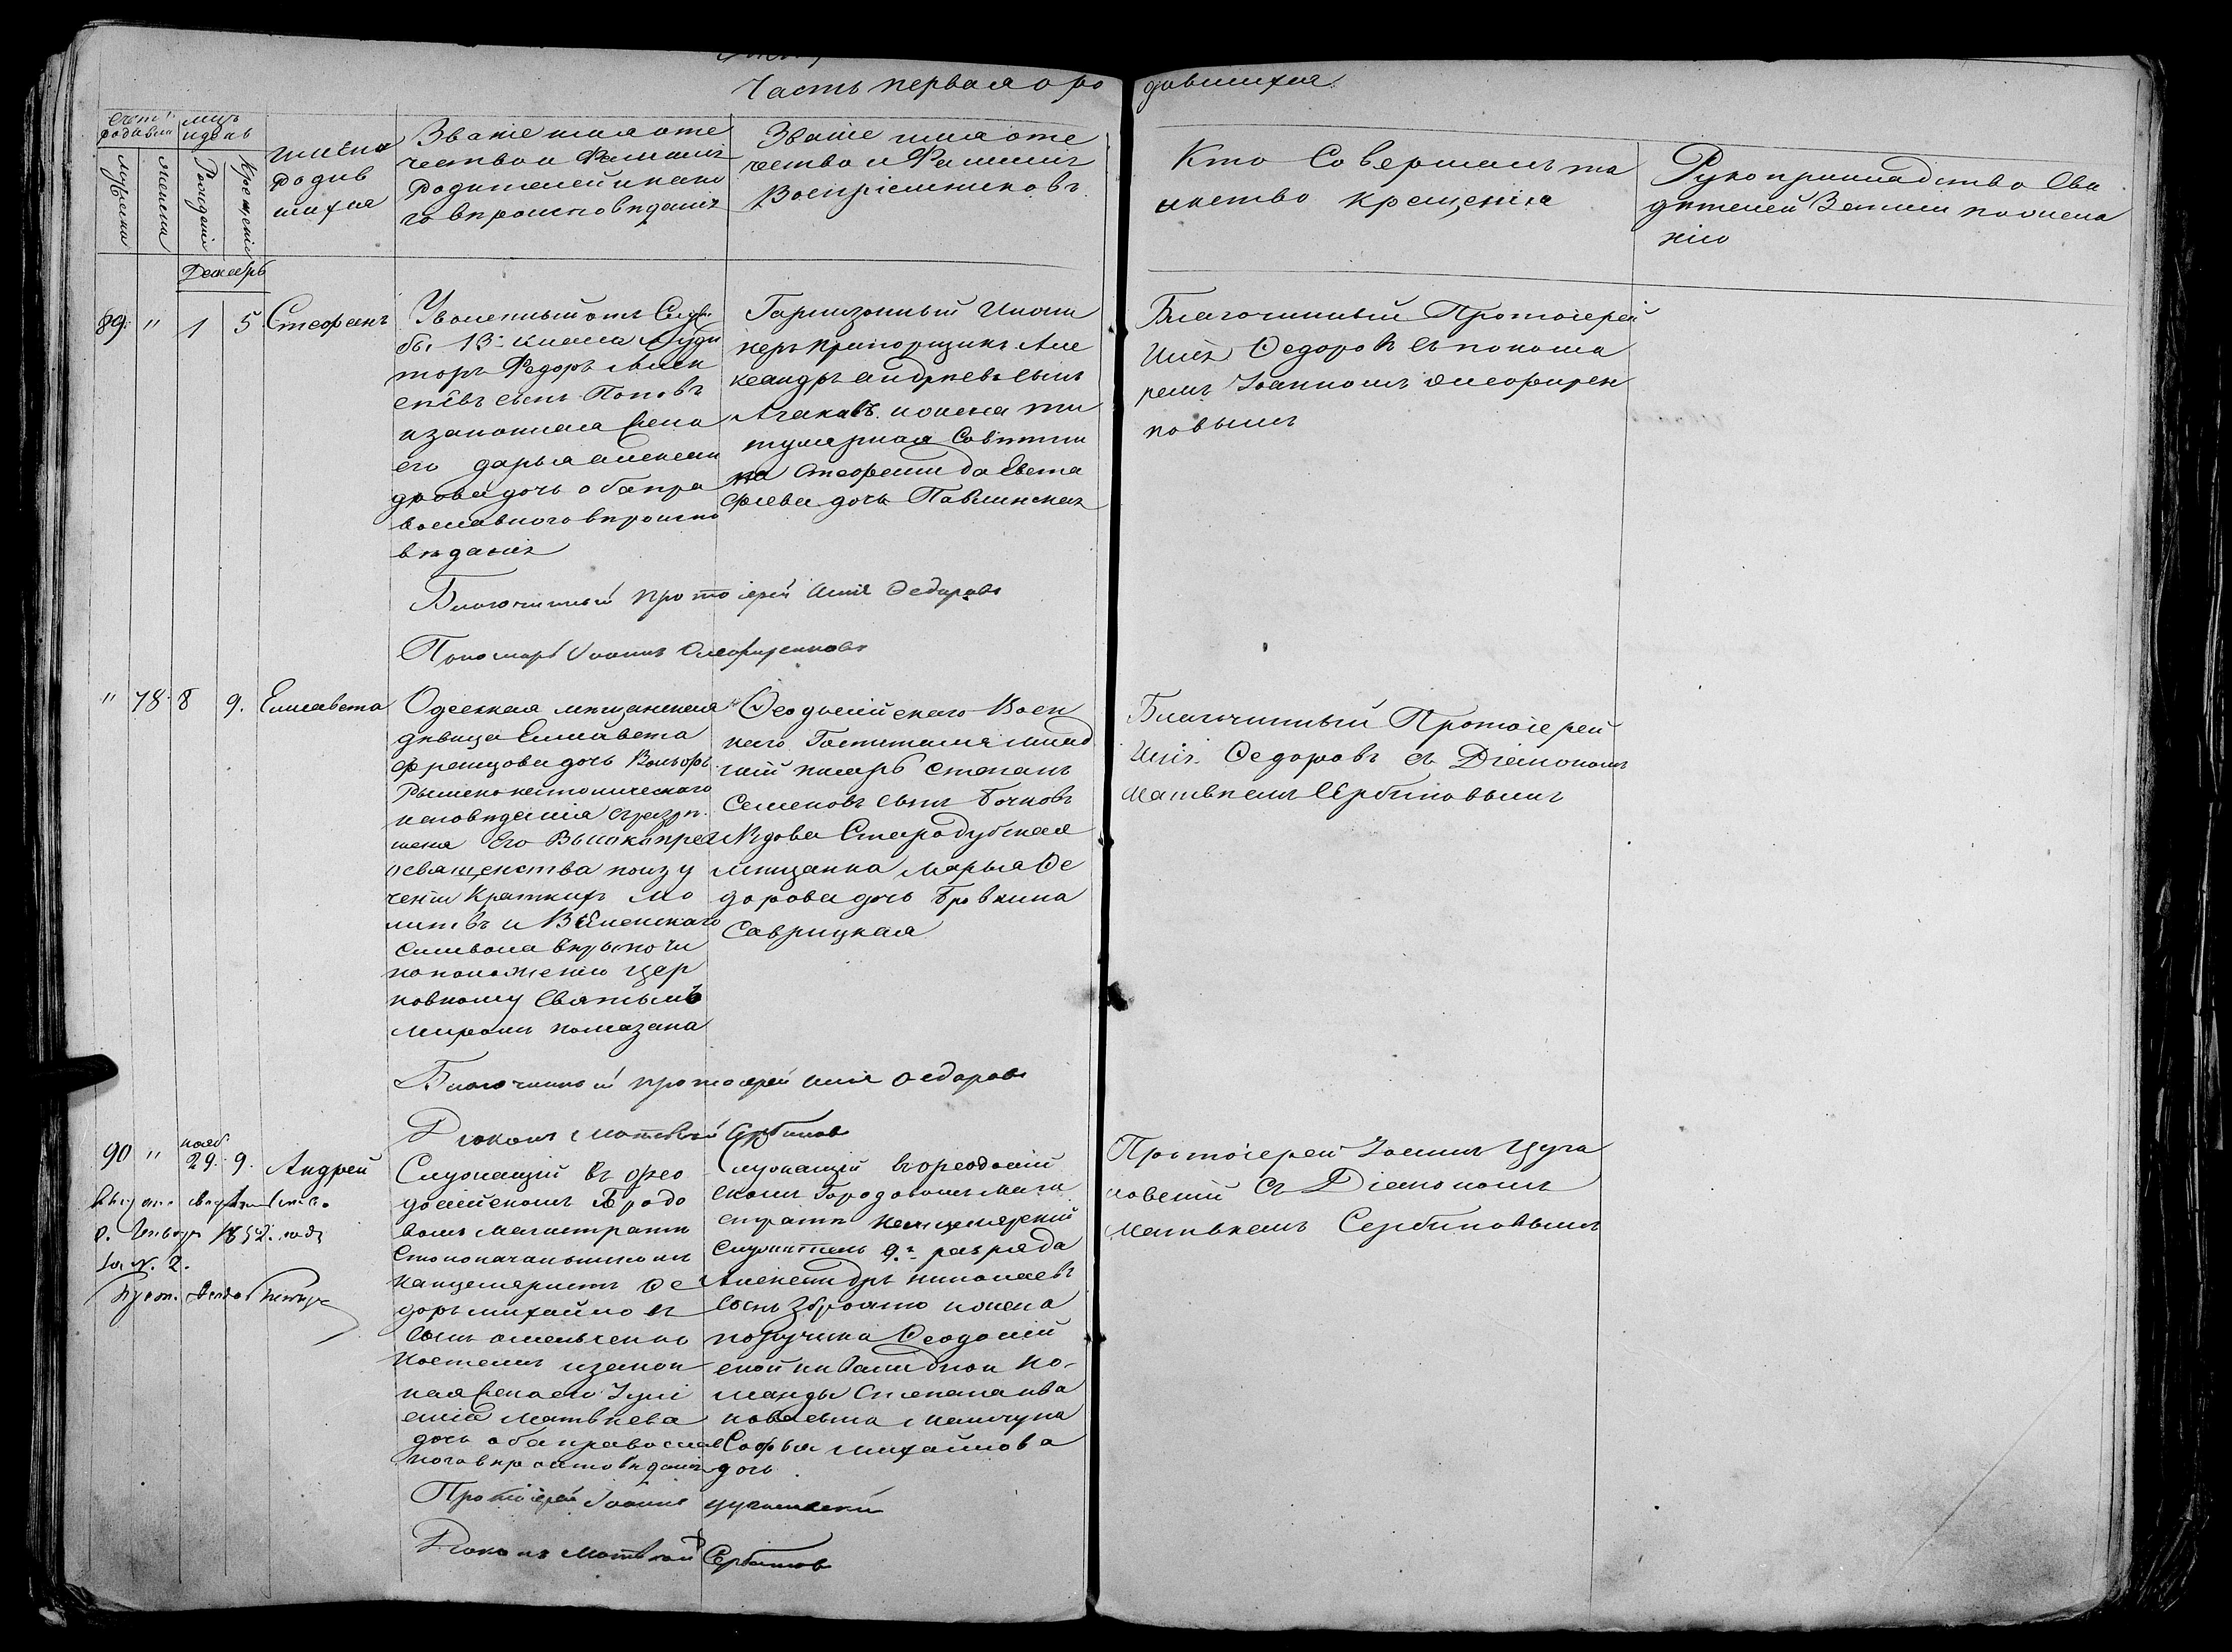 Часть первая о ро дившихся
Счетъ родивш
мцъ и день
Мужеска
Женска
Рожденія
Крещенія
Имена
родив
шихся
Званіе имя оте
чество и Фамилія
Родителей и како
го вѣроисповѣданія
Званіе имя оте
чество и Фамилія
Воспріемниковъ
Кто Совершалъ та
инство крещенія
Рукоприкладство Сви
дѣтелей Записи по жела
нію
Декабрь
89. " 1 5. Стефанъ
Уволенный отъ Служ
бы 13 класса Ауди
торъ Федоръ Алек
сѣевъ сынъ Поповъ
и законная жена
его дарья алексан
дрова дочь оба пра
вославного вѣроиспо
вѣданія
Гарнизонный Инжи
неръ прапорщикъ Але
ксандръ андреевъ сынъ
и жена ти
тулярная Совѣтни
ца Стефанида Евста
фіева дочь Павлинская
Благочинный Протоіерей
Илія Федоровъ съ понома
ремъ Іоанномъ
новымъ
Благочинный протоіерей Илія Федоровъ
Пономарь Іоаннъ
" 78. 8 9. Елисавета
Одесская мѣщанская
дѣвица Елисавета
францова дочь
Римско католического
исповѣданія съ разрѣ
шенія Его Высокопрео
освященства по изу
ченіи Краткихъ мо
литвъ и
Символа вѣры по чи
ноположенію цер
ковному Святымъ
миромъ помазана
Феодосійскаго Воен
наго Госпиталя млад
шій писарь степанъ
Семеновъ сынъ Бочковъ
вдова Стародубская
мѣщанка Марья Фе
дорова дочь Бровкина
Савицкая
Благочинный Протоіерей
Илія Федоровъ съ Діакономъ
Матвѣемъ Сербиновымъ
Благочинный протоіерей Илія Федоровъ
Діаконъ Матвѣй Сербинов
90 " нояб. 29. 9. Андрей
Выдано свидѣтельство
8. Генваря 1852. года
за N. 2.
Прот.
Служащій въ Фео
досійскомъ Городо
вомъ Магистратѣ
Столоначальникомъ
канцеляристъ Фе
доръ михайловъ
сынъ омельченко
Костенъ и закон
ная жена его Іулі
анія Матвѣева
дочь оба православ
ного вѣроисповѣданія
Служащій въ феодосій
скомъ Городовомъ Маги
стратѣ канцелярскій
служитель 2. разряда
Александръ николаевъ
сынъ и жена
поручика Феодосій
ской инвалидной ко-
манды Степана ива
нова сына
Софья михайлова
дочь
Протоіерей Іоаннъ
съ Діакономъ
Матвѣемъ Сербиновымъ
Протоіерей Іоаннъ
Діаконъ Матвѣй Сербинов